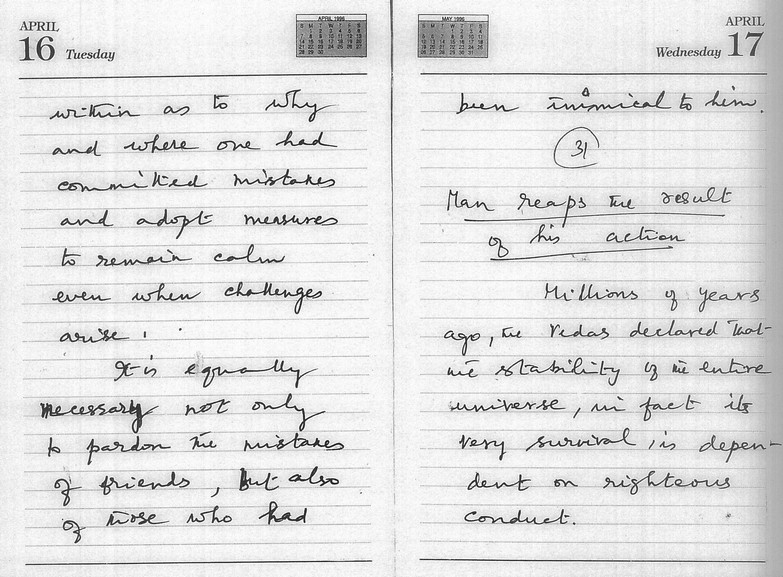 APRIL
16 Tuesday
APRIL 1996
within as to why
and where one had
committed mistakes
and adopt measures
to remain calm
even when challenges
arise.
It is equally
necessary not only
to pardon the mistakes
of friends, but also
of those who had
MAY 1996
APRIL
Wednesday 17
been inimical to him.
31
Man reaps the result
of his action
Millions of years
ago, the Vedas declared that
the stability of the entire
universe, in fact its
very survival, is depen-
dent on righteous
conduct.